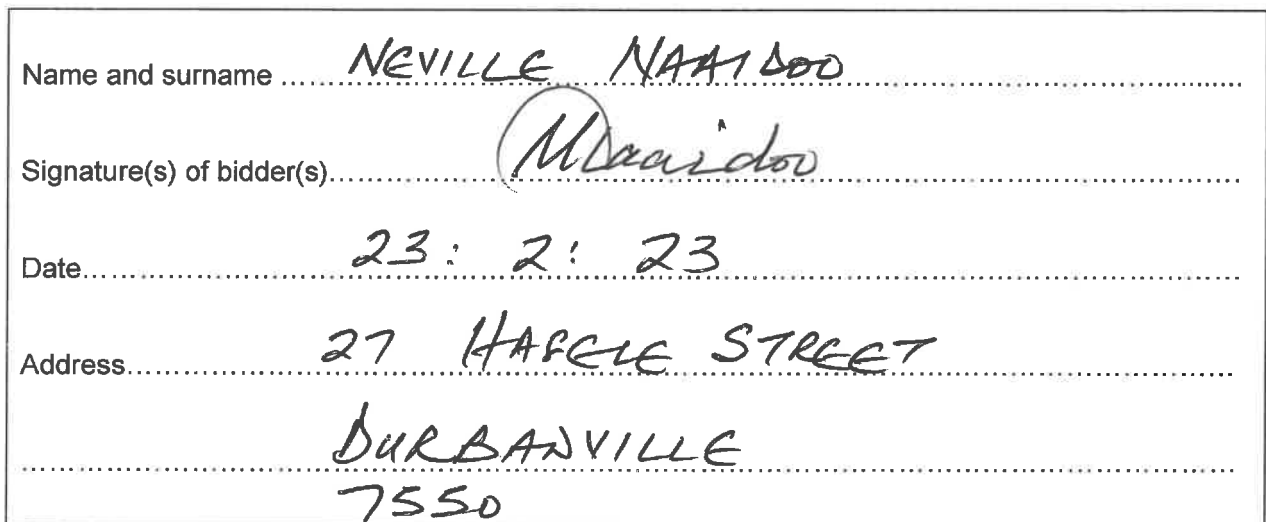 Name and surname ..... NEVILLE NAAIDOO
Signature(s) of bidder(s)..... NNaaidoo
Date..... 23 : 2 : 23
Address..... 27 HAFELE STREET
DURBANVILLE
7550